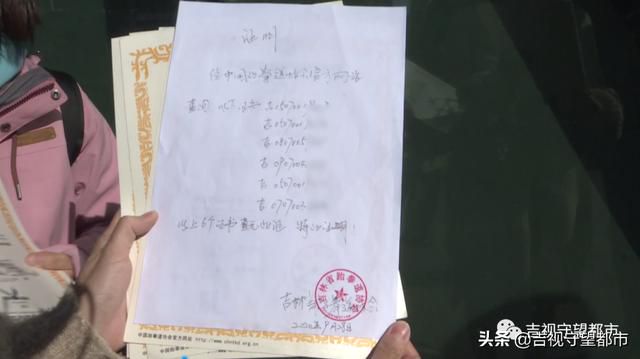 证明
经中国跆拳道协会官方网站
查询 以下证书 吉0507001
吉0507001
吉0807005
吉0907002
吉0507001
吉0707003
以上6个证书查无此证 特此证明!
吉林省跆拳道协会
吉林省跆拳道协会
2020年7月28日
中国跆拳道协会官方网站 http://www.chntkd.org.cn
吉视守望都市
头条 @吉视守望都市